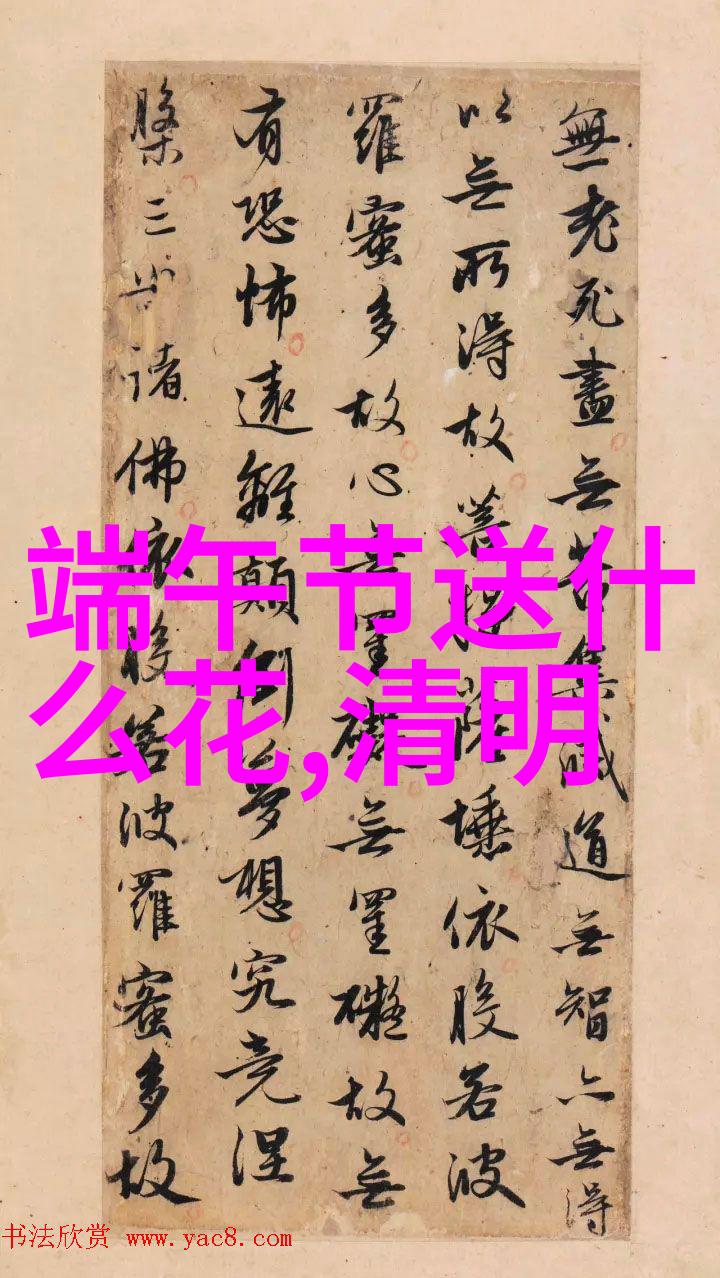 無老死盡無苦集滅道無智亦無得
以無所得故菩提薩埵依般若波
羅蜜多故心無罣礙無罣礙故無
有恐怖遠離顛倒夢想究竟涅
槃三世諸佛依般若波羅蜜多故
端午节送什
么花,清明
书法欣赏 www.yac8.com